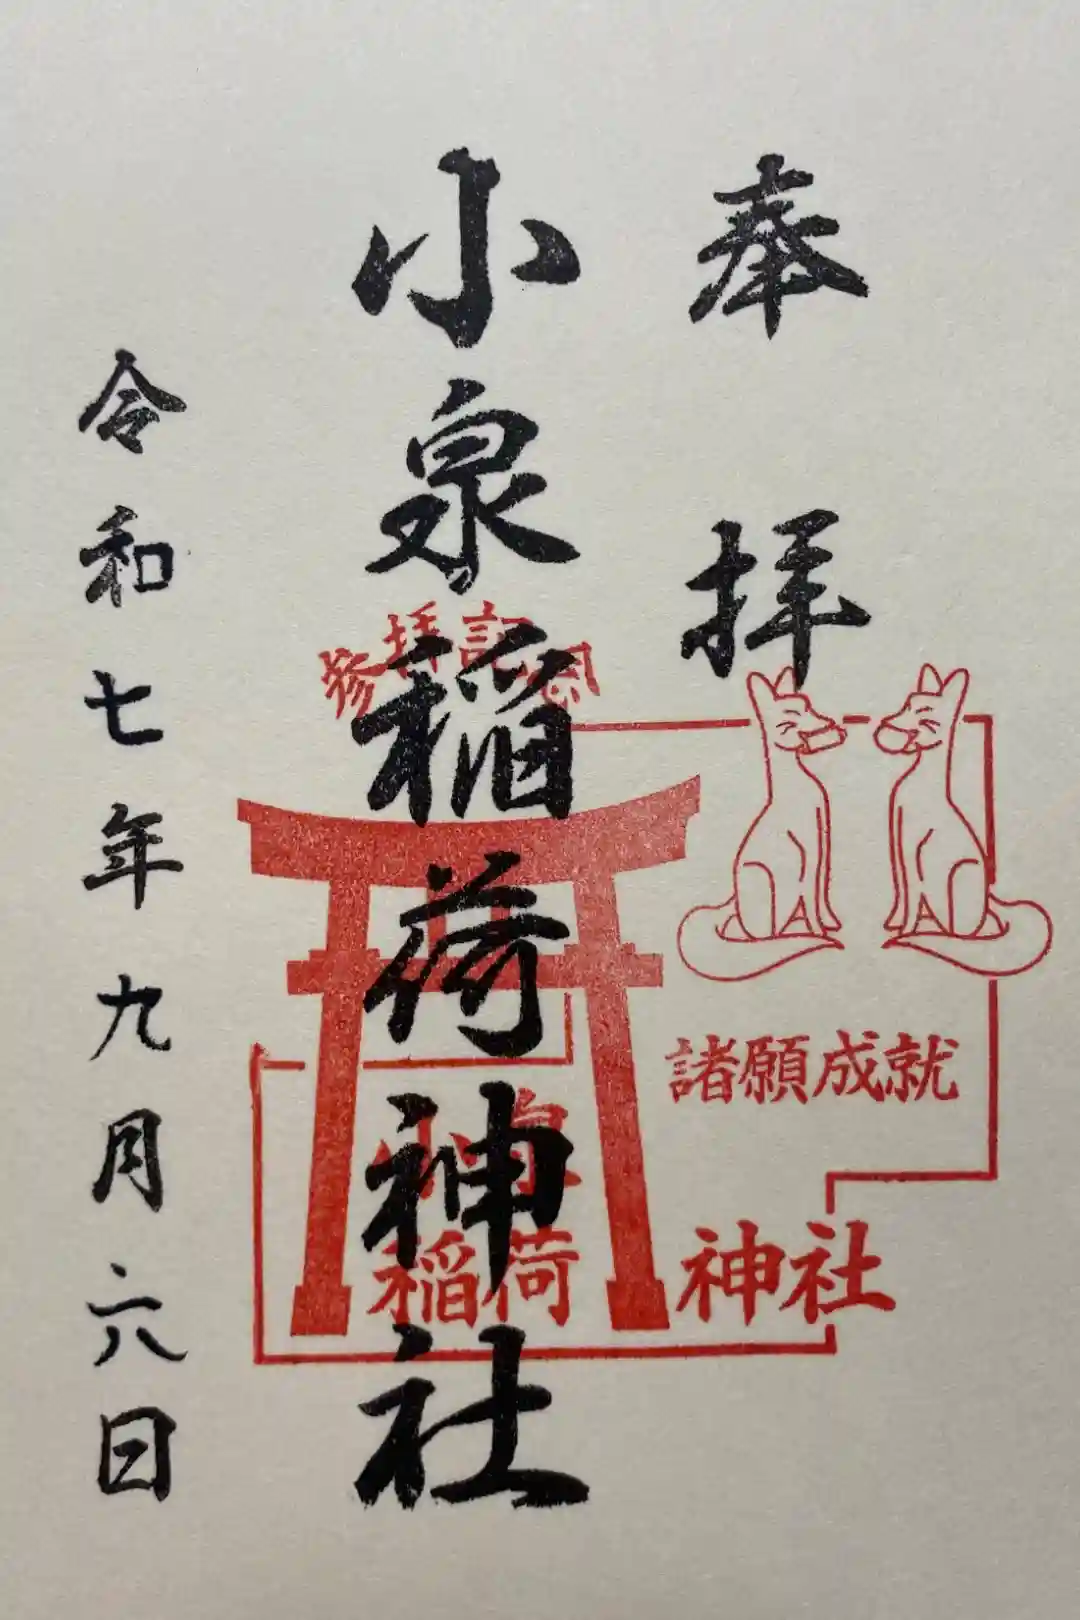 奉拝
小泉稲荷神社
令和七年九月六日
参拝記念
諸願成就
小泉
稲荷
神社